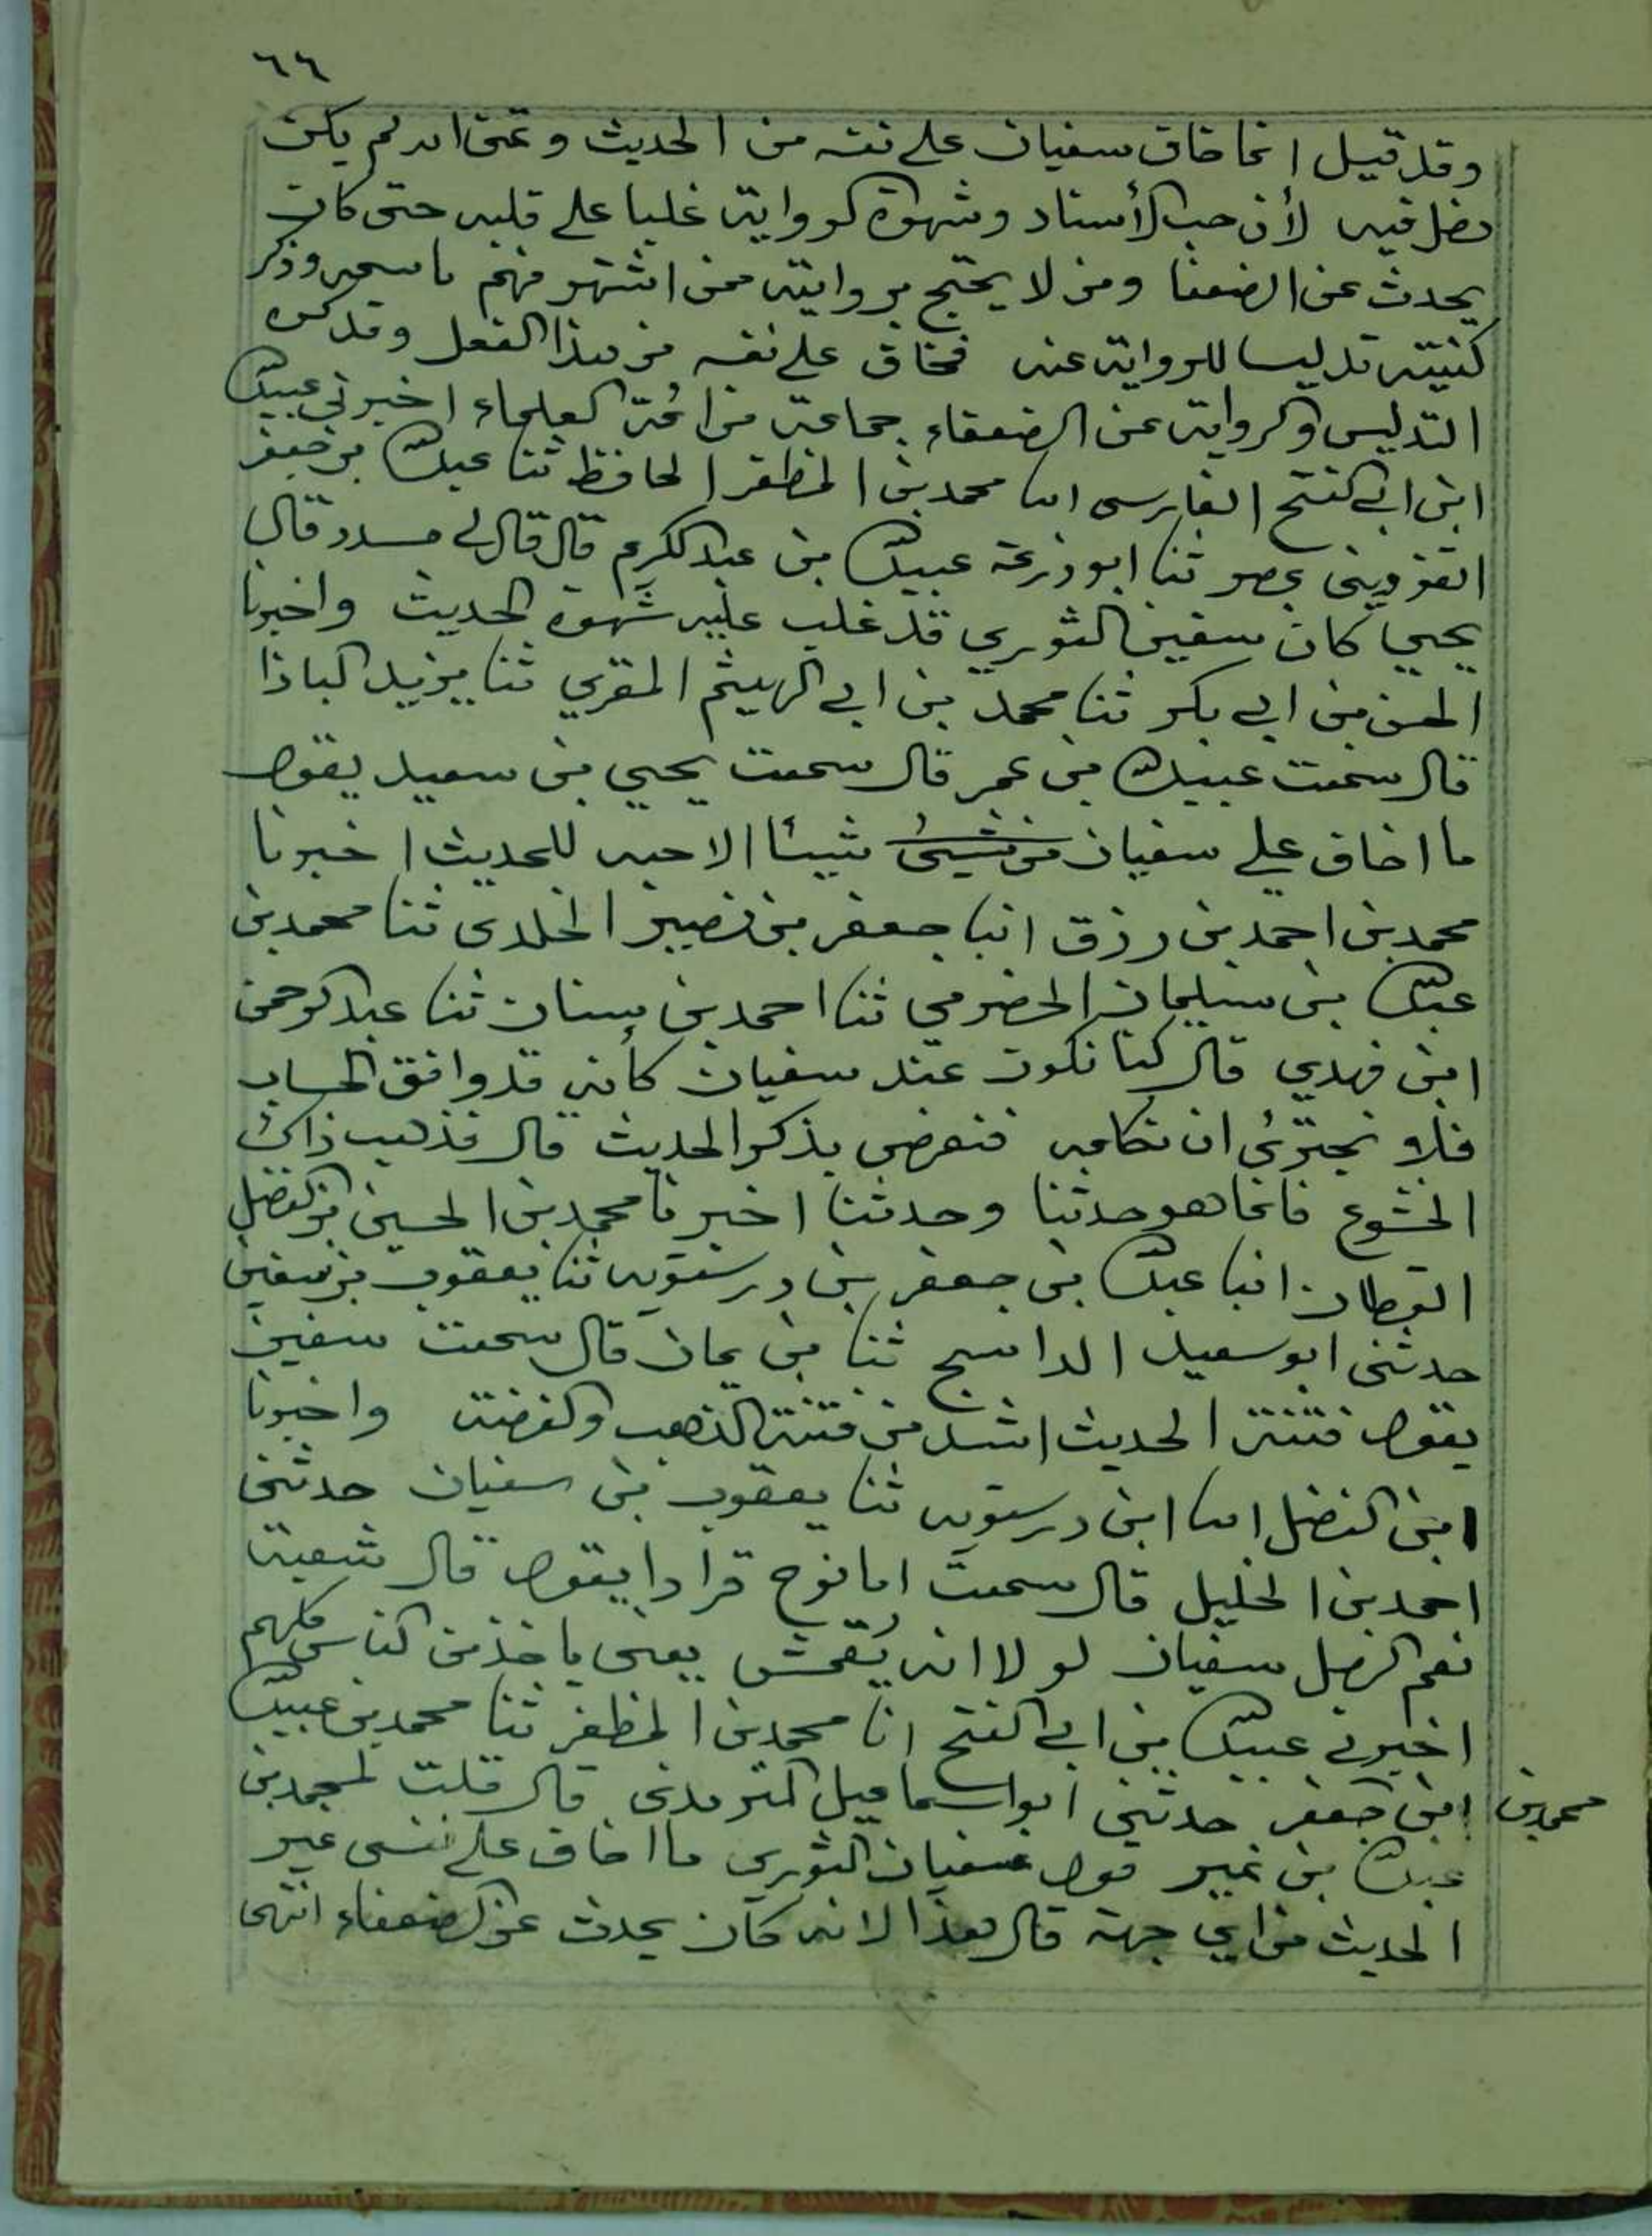 ٦٦
وقد قيل انما خاف سفيان على نفسه من الحديث وتمنى انه لم يكن
دخل فيه لأن حب الأسناد وشهوة الرواية غلبا على قلبه حتى كان
يحدث عن الضعفا ومن لا يحتج بروايته فمن اشتهر منهم باسمه وذكر
كنيته تدليسا للرواية عنه فخاف على نفسه من هذا الفعل وقد كره
التدليس والرواية عن الضعفاء جماعة من ائمة العلماء اخبرني عبيد الله
ابن ابي الفتح الفارسي انا محمد بن المظفر الحافظ ثنا عبد الله بن جعفر
القزويني بمصر ثنا ابو زرعة عبيد الله بن عبد الكريم قال قال لي مسدد قال
يحيي كان سفين الثوري قد غلب عليه شهوة الحديث واخبرنا
الحسن بن ابي بكر ثنا محمد بن ابي الهيثم المقري ثنا يزيد الباذا
قال سمعت عبيد الله بن عمر قال سمعت يحيي بن سعيد يقول
ما اخاف علي سفيان من شيئ شيئا الا حبه للحديث اخبرنا
محمد بن احمد بن رزق انبا جعفر بن نصير الخلدى ثنا محمد بن
عبد الله بن سليمان الحضرمي ثنا احمد بن سنان ثنا عبد الرحمن
ابن مهدي قال كنا نكون عند سفيان كأنه قد وافق الحساب
فلا نجترئ ان نكلمه فنعرض بذكر الحديث قال فذهب ذاك
الخشوع فانما هو حدثنا وحدثنا اخبرنا محمد بن الحسين بن الفضل
القطان انبا عبد الله بن جعفر بن درستويه ثنا يعقوب بن سفين
حدثنى ابو سعيد الداسج ثنا بن يمان قال سمعت سفين
يقول فتنة الحديث اشد من فتنة الذهب والفضة واخبرنا
ابن الفضل انا ابن درستويه ثنا يعقوب بن سفيان حدثنى
احمد بن الخليل قال سمعت ابا نوح قرادا يقول قال شعبة
نعم الرجل سفيان لو لا انه يُقمش يعنى ياخذ من الناس كلهم
اخبرني عبيد الله بن ابي الفتح انا محمد بن المظفر ثنا محمد بن عبيد الله
محمد بن ابن جعفر حدثني ابو اسماعيل الترمذى قال قلت لمحمد بن
عبد الله بن نمير قول سفيان الثوري ما اخاف على نفسى غير
الحديث من اي جهة قال هذا لانه كان يحدث عن الضعفاء انتهى